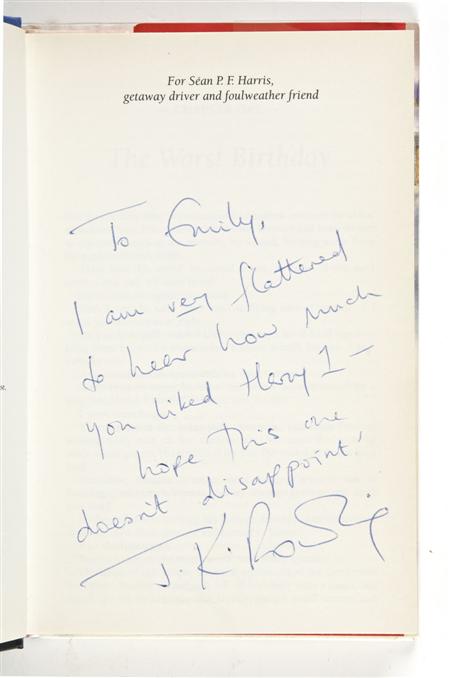 For Séan P. F. Harris,
getaway driver and foulweather friend
The Worst Birthday
To Emily,
I am very flattered
to hear how much
you liked Harry 1 –
hope this one
doesn't disappoint!
J. K. Rowling
st.